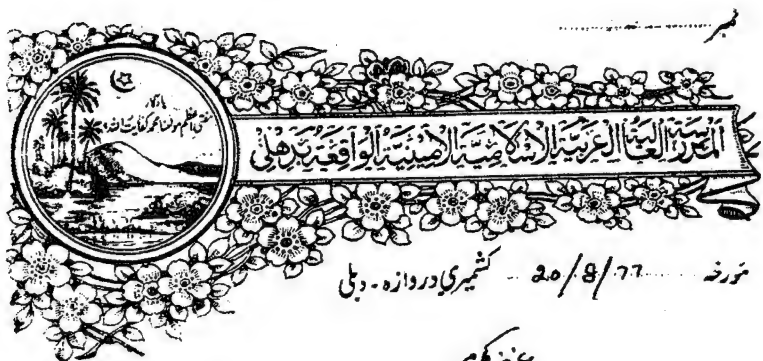 نمبر
یادگار
مفتی اعظم مولانا محمد کفایت اللہ
المدرسة العالية العربية الاسلامية الامينية الواقعة بدهلی
مورخہ 20/8/77 کشمیری دروازہ - دہلی